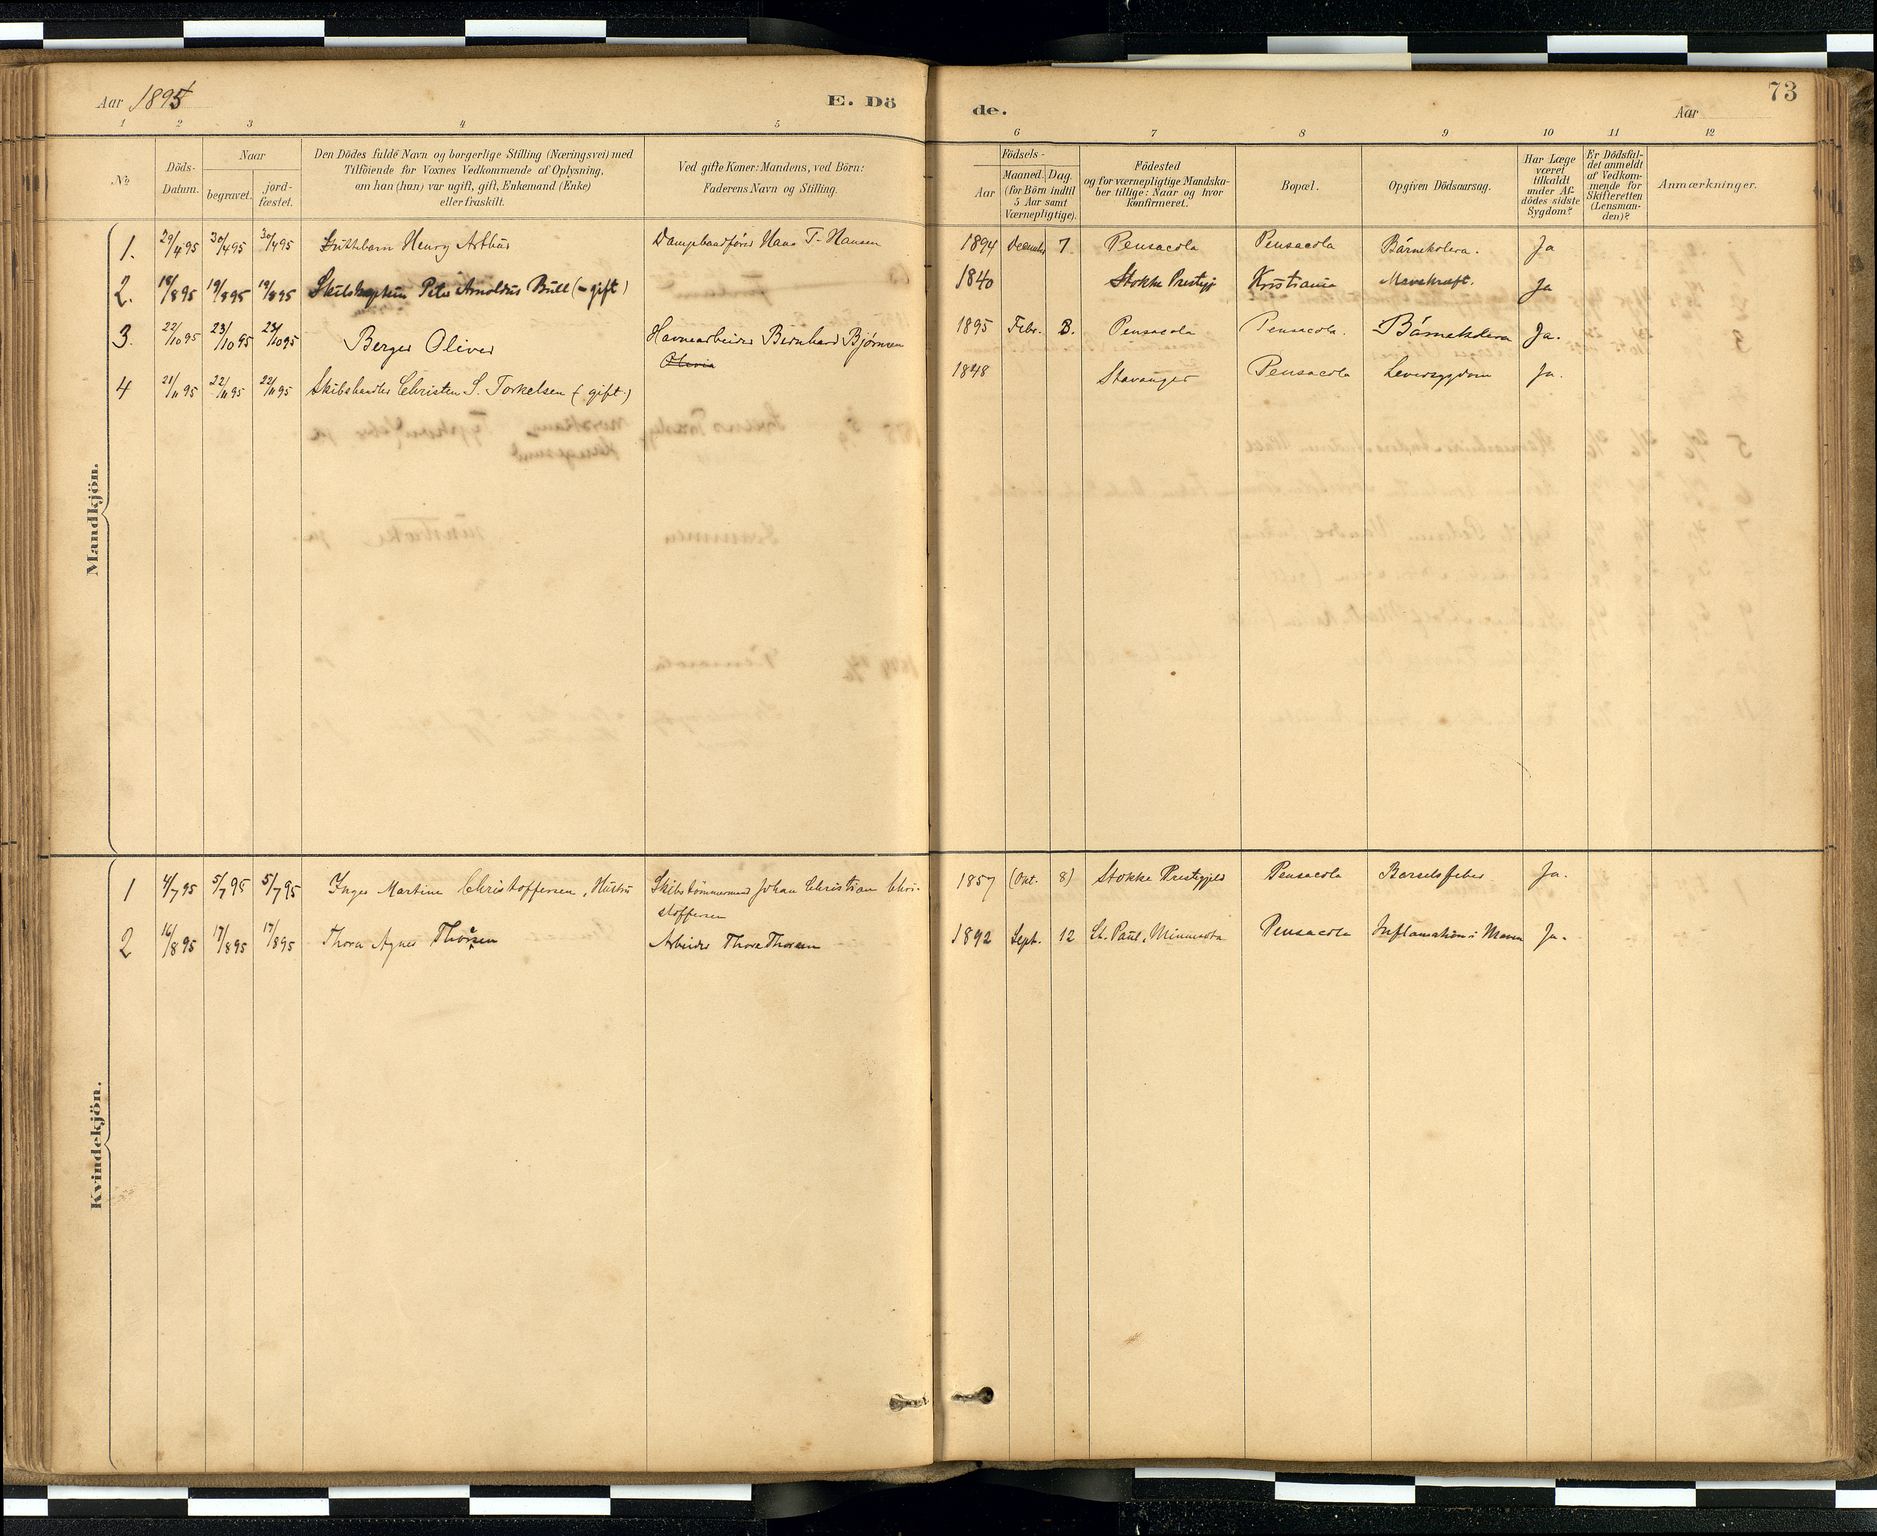 Aar 1895
E. Dö
de.
Aar
73
1 2 3 4 5 6 7 8 9 10 11 12
No
Döds-
Datum.
Naar
begravet.
jord-
fæstet.
Den Dödes fulde Navn og borgerlige Stilling (Næringsvei) med
Tilföiende for Voxnes Vedkommende af Oplysning,
om han (hun) var ugift, gift, Enkemand (Enke)
eller fraskilt.
Ved gifte Koner: Mandens, ved Börn:
Faderens Navn og Stilling.
Födsels-
Aar
Maaned. Dag.
(for Börn indtil
5 Aar samt
Værnepligtige).
Födested
og for værnepligtige Mandska-
ber tillige: Naar og hvor
konfirmeret.
Bopæl.
Opgiven Dödsaarsag.
Har Læge
været
tilkaldt
under Af-
dödes sidste
Sygdom?
Er Dödsfal-
det anmeldt
af Vedkom-
mende for
Skifteretten
(Lensman-
den)?
Anmærkninger.
Mandkjön.
1. 29/4 95 30/4 95 30/4 95 Henry Arthur Hans T. Hansen 1894 December 7 Pensacola Pensacola Børnekolera. Ja
2. 18/8 95 19/8 95 19/8 95 Skibskaptein Peter Arnoldus Bull (- gift) 1840 Stokke Prestgj Kristiania Mavekræft. Ja
3. 22/10 95 23/10 95 23/10 95 Berger Oliver Havnearbeider Bernhard Bjørnsen 1895 Febr. 3. Pensacola Pensacola. Børnekolera Ja.
Olivia
4 21/11 95 22/11 95 22/11 95 Skibshandler Christen S. Torkelsen (gift.) 1848 Stavanger Pensacola Leversygdom Ja.
Kvindekjön.
1 4/7 95 5/7 95 5/7 95 Inger Martine Christoffersen, Hustru Skibstömmermand Johan Christian Chri-
stoffersen 1857 (Okt. 8) Stokke Prestegjeld Pensacola Barselsfeber Ja.
2 16/8 95 17/8 95 17/8 95 Thora Agnes Thorsen Arbeider Thore Thorsen 1892 Sept. 12 St. Paul, Minnesota Pensacola Inflamation i Maven Ja.